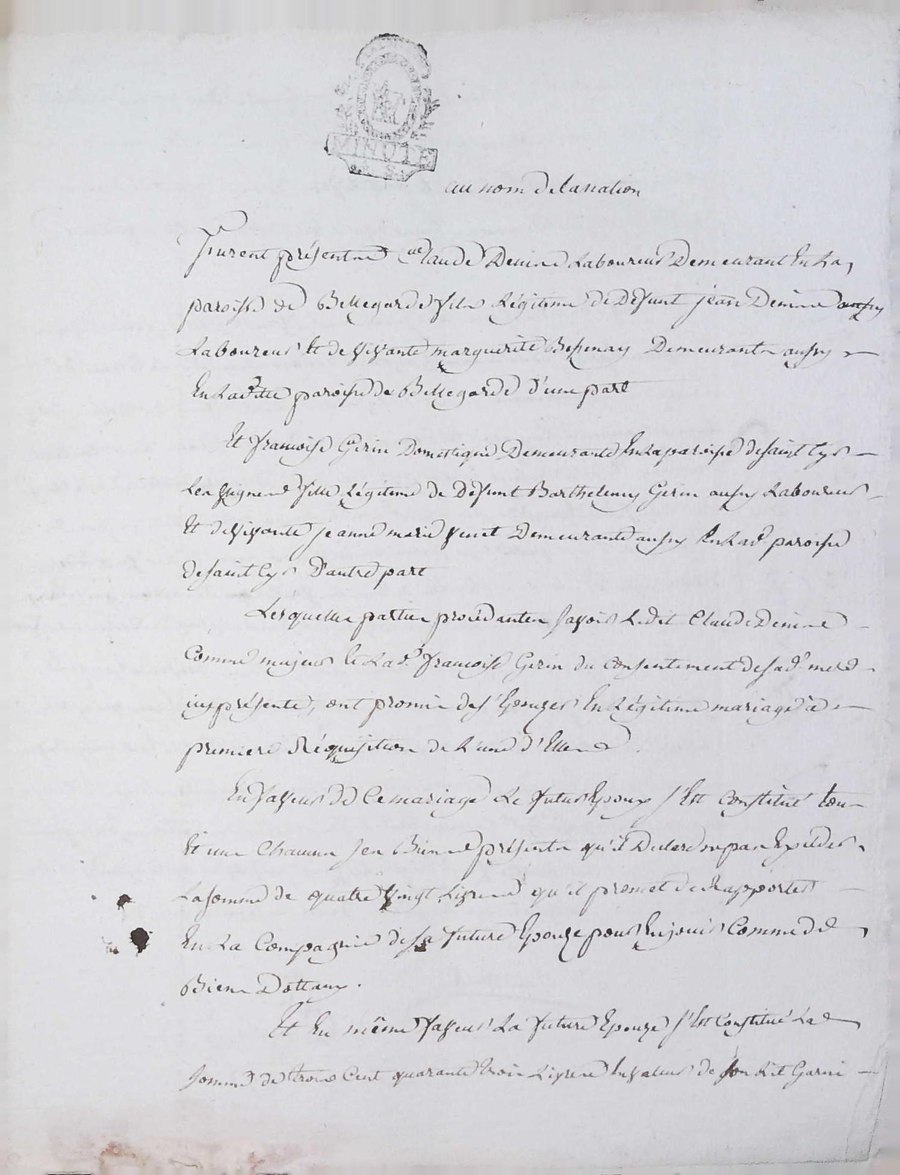 MINUTE
au nom de la nation
Furent présents Claude Denis Laboureur Demeurant En La
paroisse de Bellegarde fils Légitime de Défunt jean Denis aussy
Laboureur Et de vivante marguerite Demeurante aussy
En Ladte paroisse de Bellegarde d'une part
Et francoise Gerin Domestique Demeurante En La paroisse de saint Cyr
Les vignes fille Légitime de Défunt Barthelemy Gerin aussy Laboureur
Et de vivante jeanne marie Demeurante aussy En Lade paroisse
de saint Cyr D'autre part
Lesquelles parties procédantes sçavoir Ledit Claude Denis
Comme majeur et Lade francoise Gerin du Consentement de sade mere
icy présente, ont promis de s'Epouzer En Légitime mariage à
premiere Réquisition de L'une d'Elles.
En faveur de Ce mariage Le futur Epoux s'Est Constitué tous
Et un Chacuns ses Biens présents qu'il Declare ne pas Exceder
La somme de quatre vingt Livres qu'il promet de Rapporter
En La Compagnie de sa future Epouze pour En jouir Comme de
Biens Dottaux.
Et En même faveur La future Epouze s'Est Constitué La
somme de trois Cent quarante trois Livres En valeur de son Lit Garni